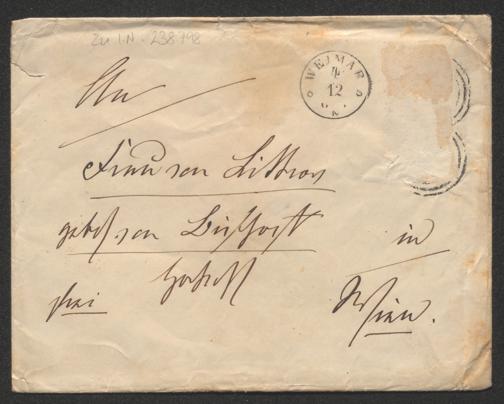 Zu I.N. 238798
WEIMAR
4
12
An
Frau von Littrow
gebor. von Bischoff
in
frei
Wien.